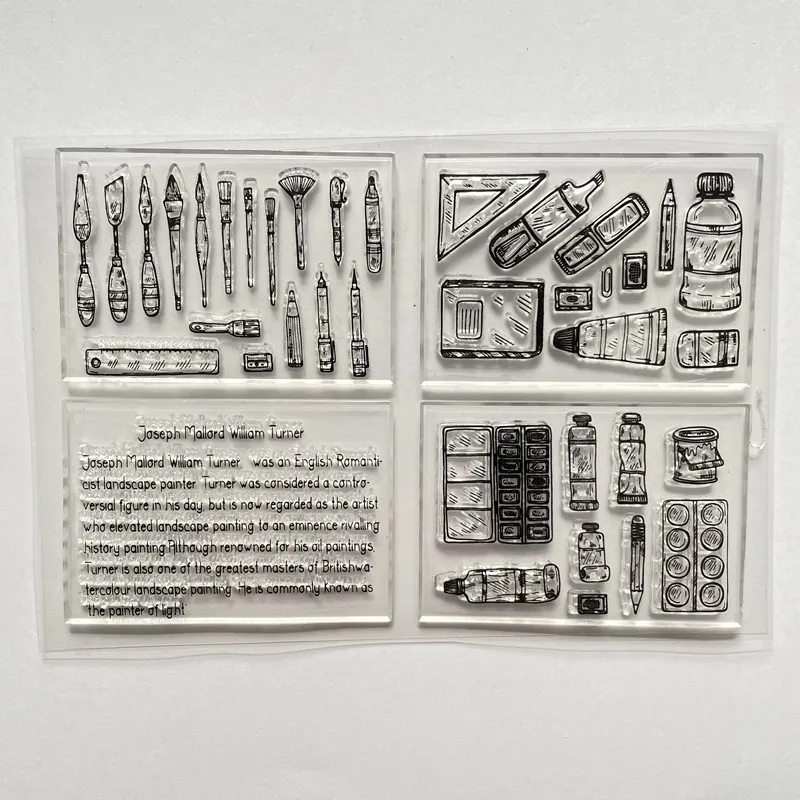 Joseph Mallord William Turner
Joseph Mallord William Turner, was an English Romanti-
cist landscape painter Turner was considered a contro-
versial figure in his day, but is now regarded as the artist
who elevated landscape painting to an eminence rivalling
history painting.Although renowned for his oil paintings,
Turner is also one of the greatest masters of Britishwa-
tercolour landscape painting. He is commonly known as
"the painter of light"